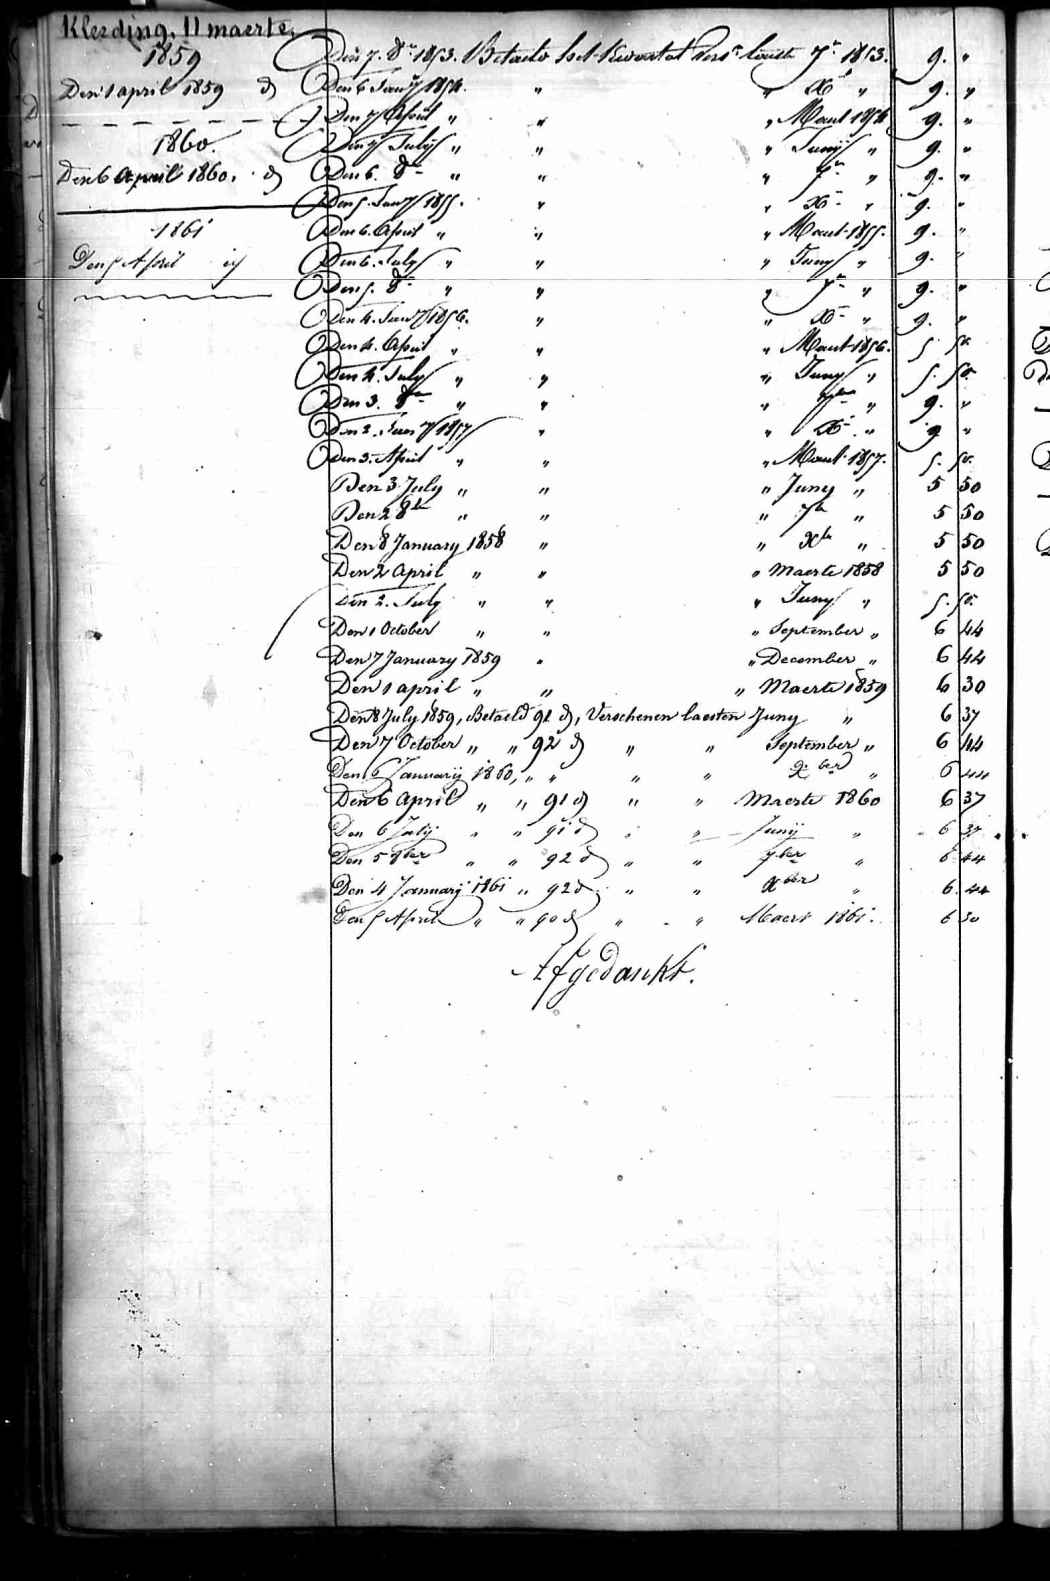 Kleeding, 11 maerte.
1859
Den 1 april 1859 d
1860.
Den 6 April 1860. d
1861
Den 5 April
Den 7. 8r 1853. Betaeld het Kwartal vers. laeste 7r 1853. 9. "
Den 6 Jany 1854. " " Xr " 9. "
Den 7 April " " " Maert 1854 9. "
Den 7 July " " " Juny " 9. "
Den 6. 8r " " " 7r " 9. "
Den 5. Jany 1855. " " Xr " 9. "
Den 6. April " " " Maert 1855. 9. "
Den 6. July " " " Juny " 9. "
Den 5. 8r " " " 7r " 9. "
Den 4. Jany 1856. " " Xr " 9. "
Den 4. April " " " Maert 1856. 5. 50.
Den 4. July " " " Juny " 5. 50.
Den 3. 8r " " " 7r " 9. "
Den 2. Jany 1857 " " Xr " 9 "
Den 3. April " " " Maert 1857. 5. 50.
Den 3 July " " " Juny " 5 50
Den 2 8br " " " 7br " 5 50
Den 8 January 1858 " " Xbr " 5 50
Den 2 April " " " Maerte 1858 5 50
Den 2. July " " " Juny " 5. 50.
Den 1 October " " " September " 6 44
Den 7 January 1859 " " December " 6 44
Den 1 april " " " Maerte 1859 6 30
Den 8 July 1859, Betaeld 91 d, Verschenen laesten Juny " 6 37
Den 7 October " " 92 d " " September " 6 44
Den 6 Januarij 1860, " " " " Xber " 6 44
Den 6 April " " 91 d " " Maerte 1860 6 37
Den 6 July " " 91 d " " Junij " 6 37
Den 5 8ber " " 92 d " " 7ber " 6 44
Den 4 Januarij 1861 " 92 d " " Xber " 6. 44
Den 5 April " " 90 d " " Maert 1861. 6 30
Afgedankt.